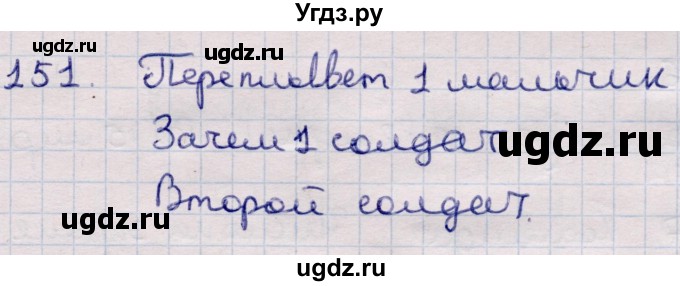 Угдз.ру
ugdz.ru ugdz.ru
151. Переплаввет 1 мальчик
Зачем 1 солдат
ugdz.ru
Второй солдат.
ugdz.ru ugdz.ru
ugdz.ru